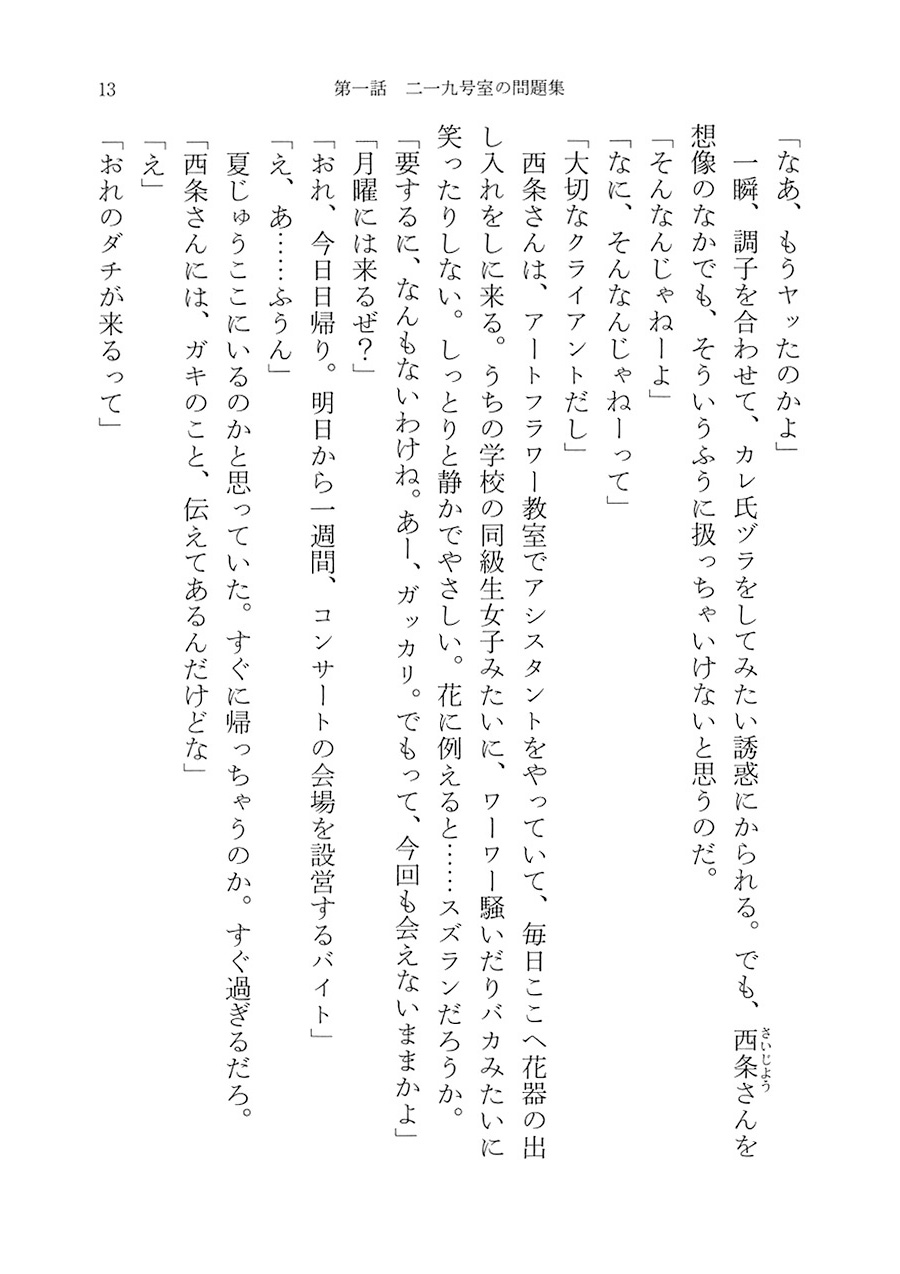 13
第一話　二一九号室の問題集
「なあ、もうヤッたのかよ」
　一瞬、調子を合わせて、カレ氏ヅラをしてみたい誘惑にかられる。でも、西条さんを
さいじよう
想像のなかでも、そういうふうに扱っちゃいけないと思うのだ。
「そんなんじゃねーよ」
「なに、そんなんじゃねーって」
「大切なクライアントだし」
　西条さんは、アートフラワー教室でアシスタントをやっていて、毎日ここへ花器の出
し入れをしに来る。うちの学校の同級生女子みたいに、ワーワー騒いだりバカみたいに
笑ったりしない。しっとりと静かでやさしい。花に例えると……スズランだろうか。
「要するに、なんもないわけね。あー、ガッカリ。でもって、今回も会えないままかよ」
「月曜には来るぜ？」
「おれ、今日日帰り。明日から一週間、コンサートの会場を設営するバイト」
「え、あ……ふうん」
　夏じゅうここにいるのかと思っていた。すぐに帰っちゃうのか。すぐ過ぎるだろ。
「西条さんには、ガキのこと、伝えてあるんだけどな」
「え」
「おれのダチが来るって」